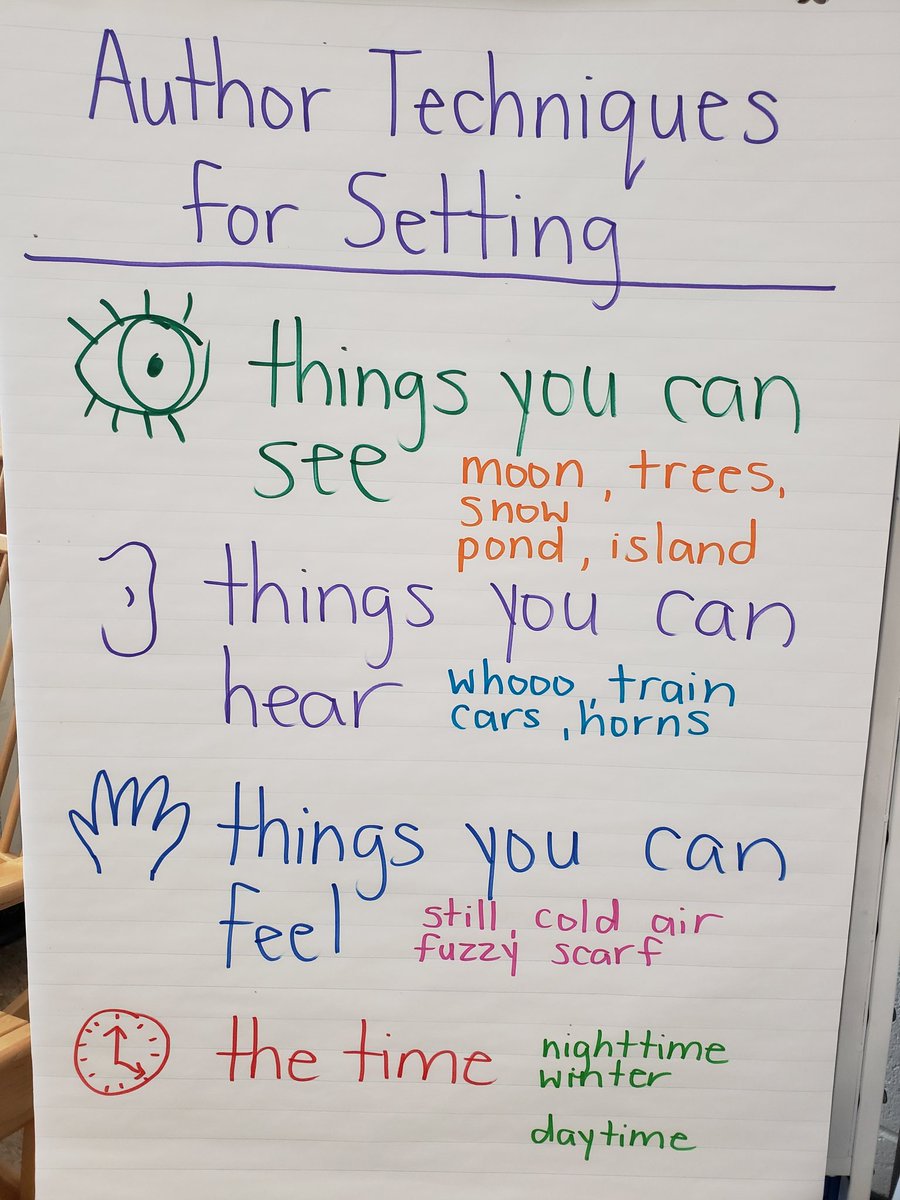 Author Techniques
for Setting
things you can
see
moon, trees,
snow
pond, island
things you can
hear
whooo, train
cars, horns
things you can
feel
still, cold air
fuzzy scarf
the time
nighttime
winter
daytime